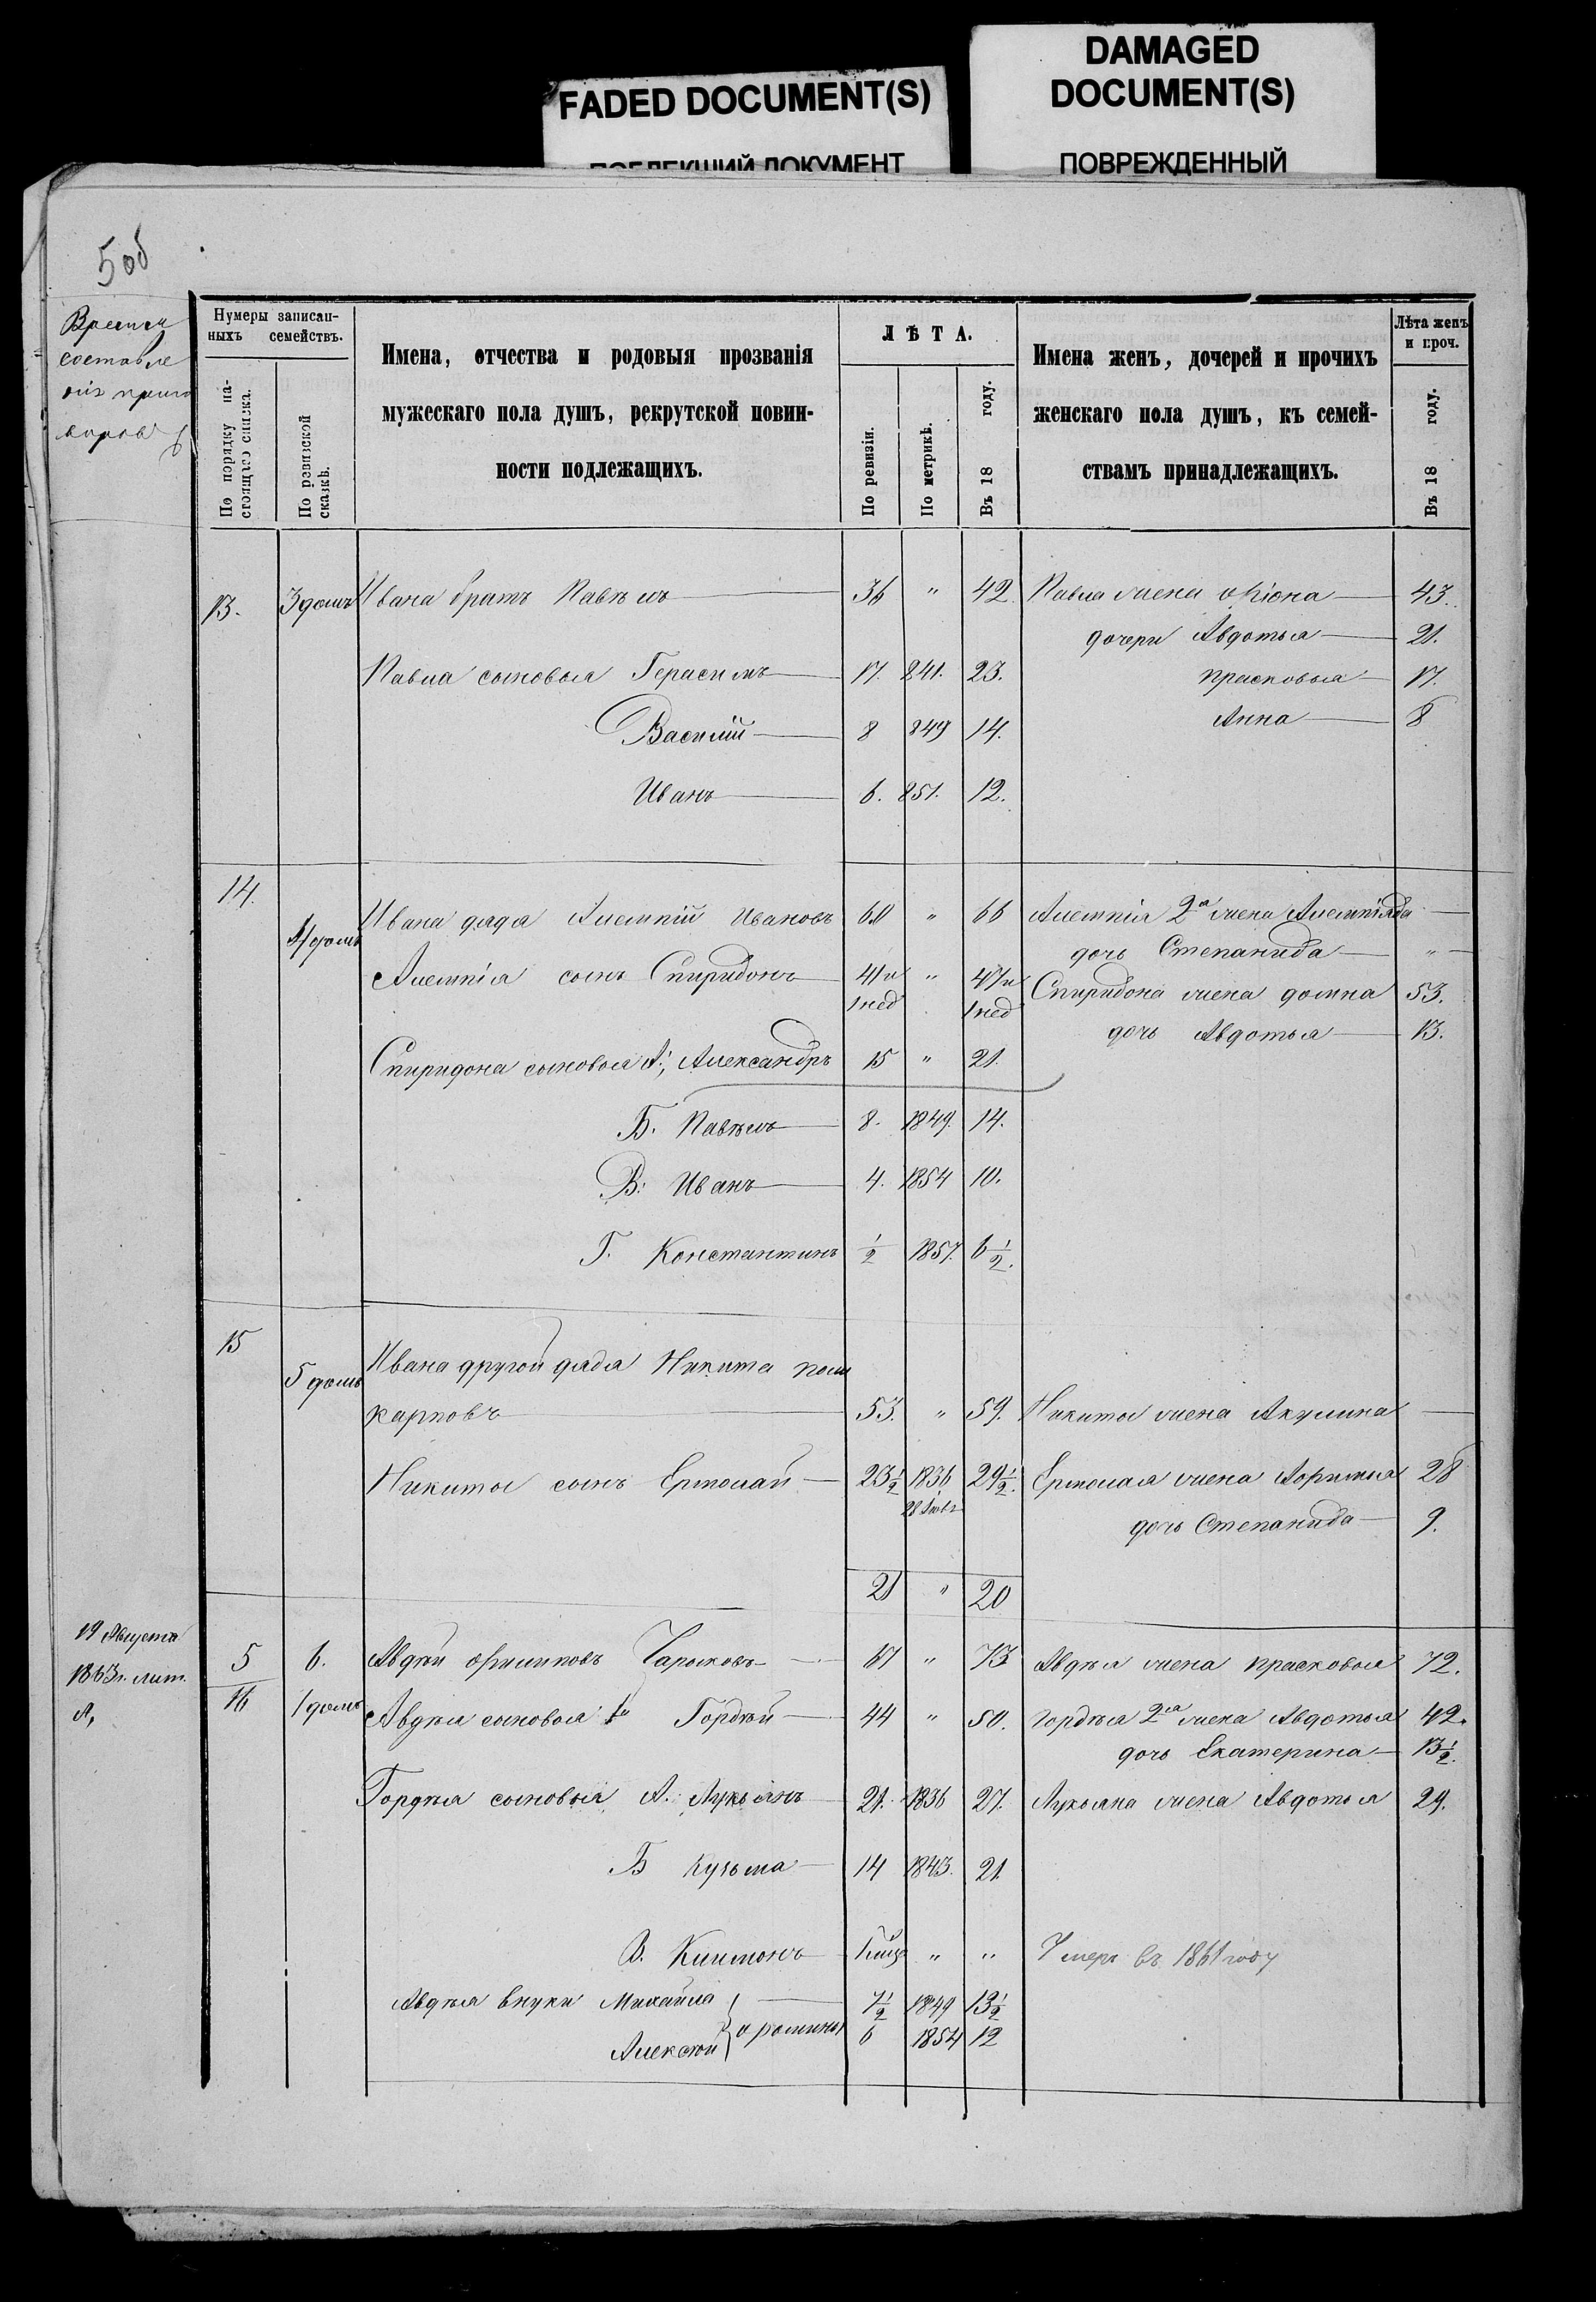 FADED DOCUMENT(S)
ПОБЛЕКШИЙ ДОКУМЕНТ
DAMAGED
DOCUMENT(S)
ПОВРЕЖДЕННЫЙ
5 об
Время
составле
Нумеры записан-
ныхъ семействъ.
По порядку на-
стоящаго списка.
По ревизской
сказкѣ.
Имена, отчества и родовыя прозванія
мужескаго пола душъ, рекрутской повин-
ности подлежащихъ.
ЛѢТА.
По ревизіи.
По метрикѣ.
Въ 18 году.
Имена женъ, дочерей и прочихъ
женскаго пола душъ, къ семей-
ствамъ принадлежащихъ.
Лѣта женъ
и проч.
Въ 18 году.
13. 3 домъ Ивана братъ Павѣлъ 36 " 42 Павла жена 43.
дочери Авдотья 21.
Павла сыновья Герасимъ 17. 841. 23. Прасковья 17.
Василій 8 849 14. Анна 8
Иванъ 6. 851. 12.
14.
4 домъ Ивана дядя Алемпій Ивановъ 60 " 66 Алемпія 2а жена
дочь Степанида "
Алемпія сынъ Спиридонъ 41 и " 47 и Спиридона жена домна 53.
1 нед 1 нед
дочь Авдотья 13.
Спиридона сыновья А, Александръ 15 " 21.
Б. Павѣлъ 8. 1849. 14.
В. Иванъ 4. 1854 10.
Г. Константинъ ½ 1857. 6½.
15
5 домъ Ивана другой дядя Никита поли
карповъ 53. " 59. Никиты жена Акулина
Никиты сынъ Ермолай 23½ 1836 29½. Ермолая жена 28
дочь Степанида 9.
21 " 20
19 Августа
1863 г. лит.
А,
5 6. Авдѣй 67 " 73 Авдѣя жена прасковья 72.
16 1 домъ Авдѣя сыновья 1й Гордѣй 44 " 50. Гордѣя 2я жена Авдотья 42.
дочь Екатерина 13½.
Гордѣя сыновья А. Лукьянъ 21. 1836 27. Лукьяна жена Авдотья 29.
Б Кузьма 14 1843. 21.
В. " " Умеръ въ 1861 году
Авдѣя внуки Михайла 7½ 1849 13½
Алексѣй 6 1854 12